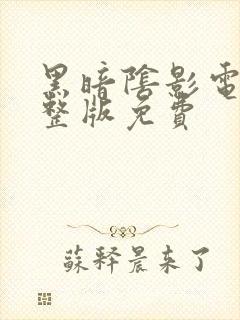 黑暗陰影電
整版免費
蘇釋晨来了